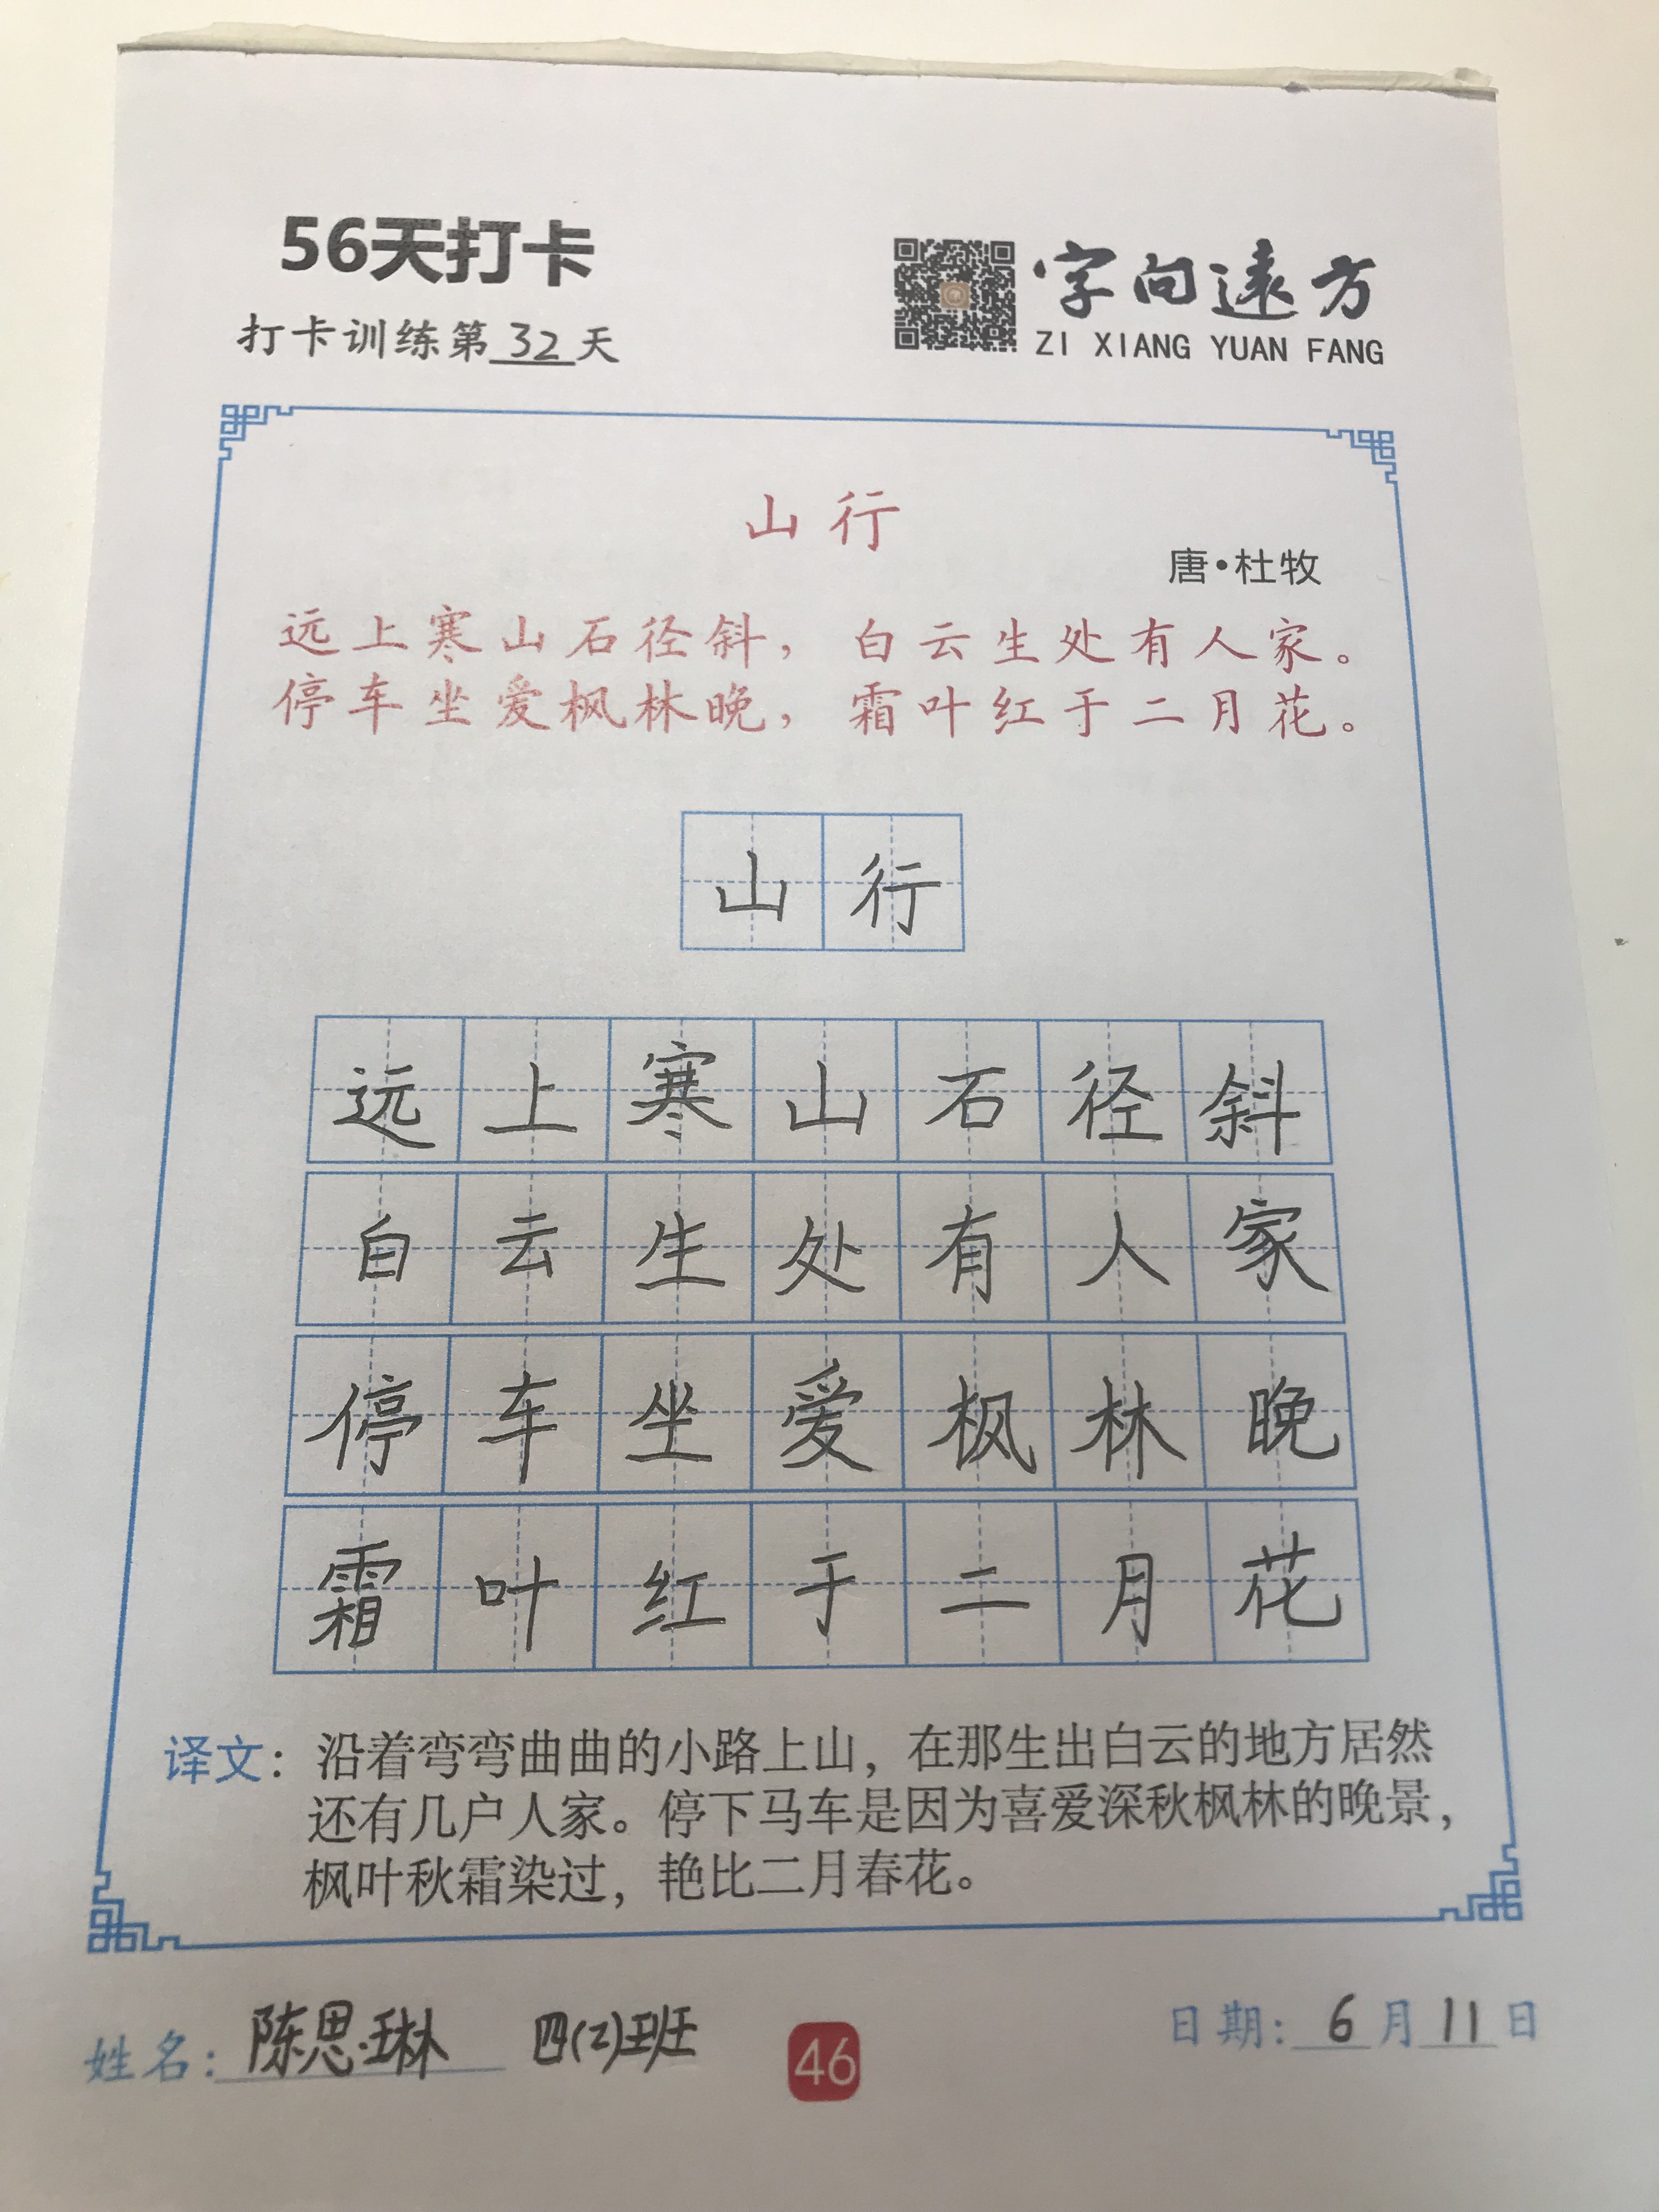 56天打卡
打卡训练第32天
字向遠方
ZI XIANG YUAN FANG
山行
唐·杜牧
远上寒山石径斜，白云生处有人家。
停车坐爱枫林晚，霜叶红于二月花。
山行
远上寒山石径斜
白云生处有人家
停车坐爱枫林晚
霜叶红于二月花
译文：沿着弯弯曲曲的小路上山，在那生出白云的地方居然
还有几户人家。停下马车是因为喜爱深秋枫林的晚景，
枫叶秋霜染过，艳比二月春花。
姓名：陈思琳 四(2)班
46
日期：6月11日